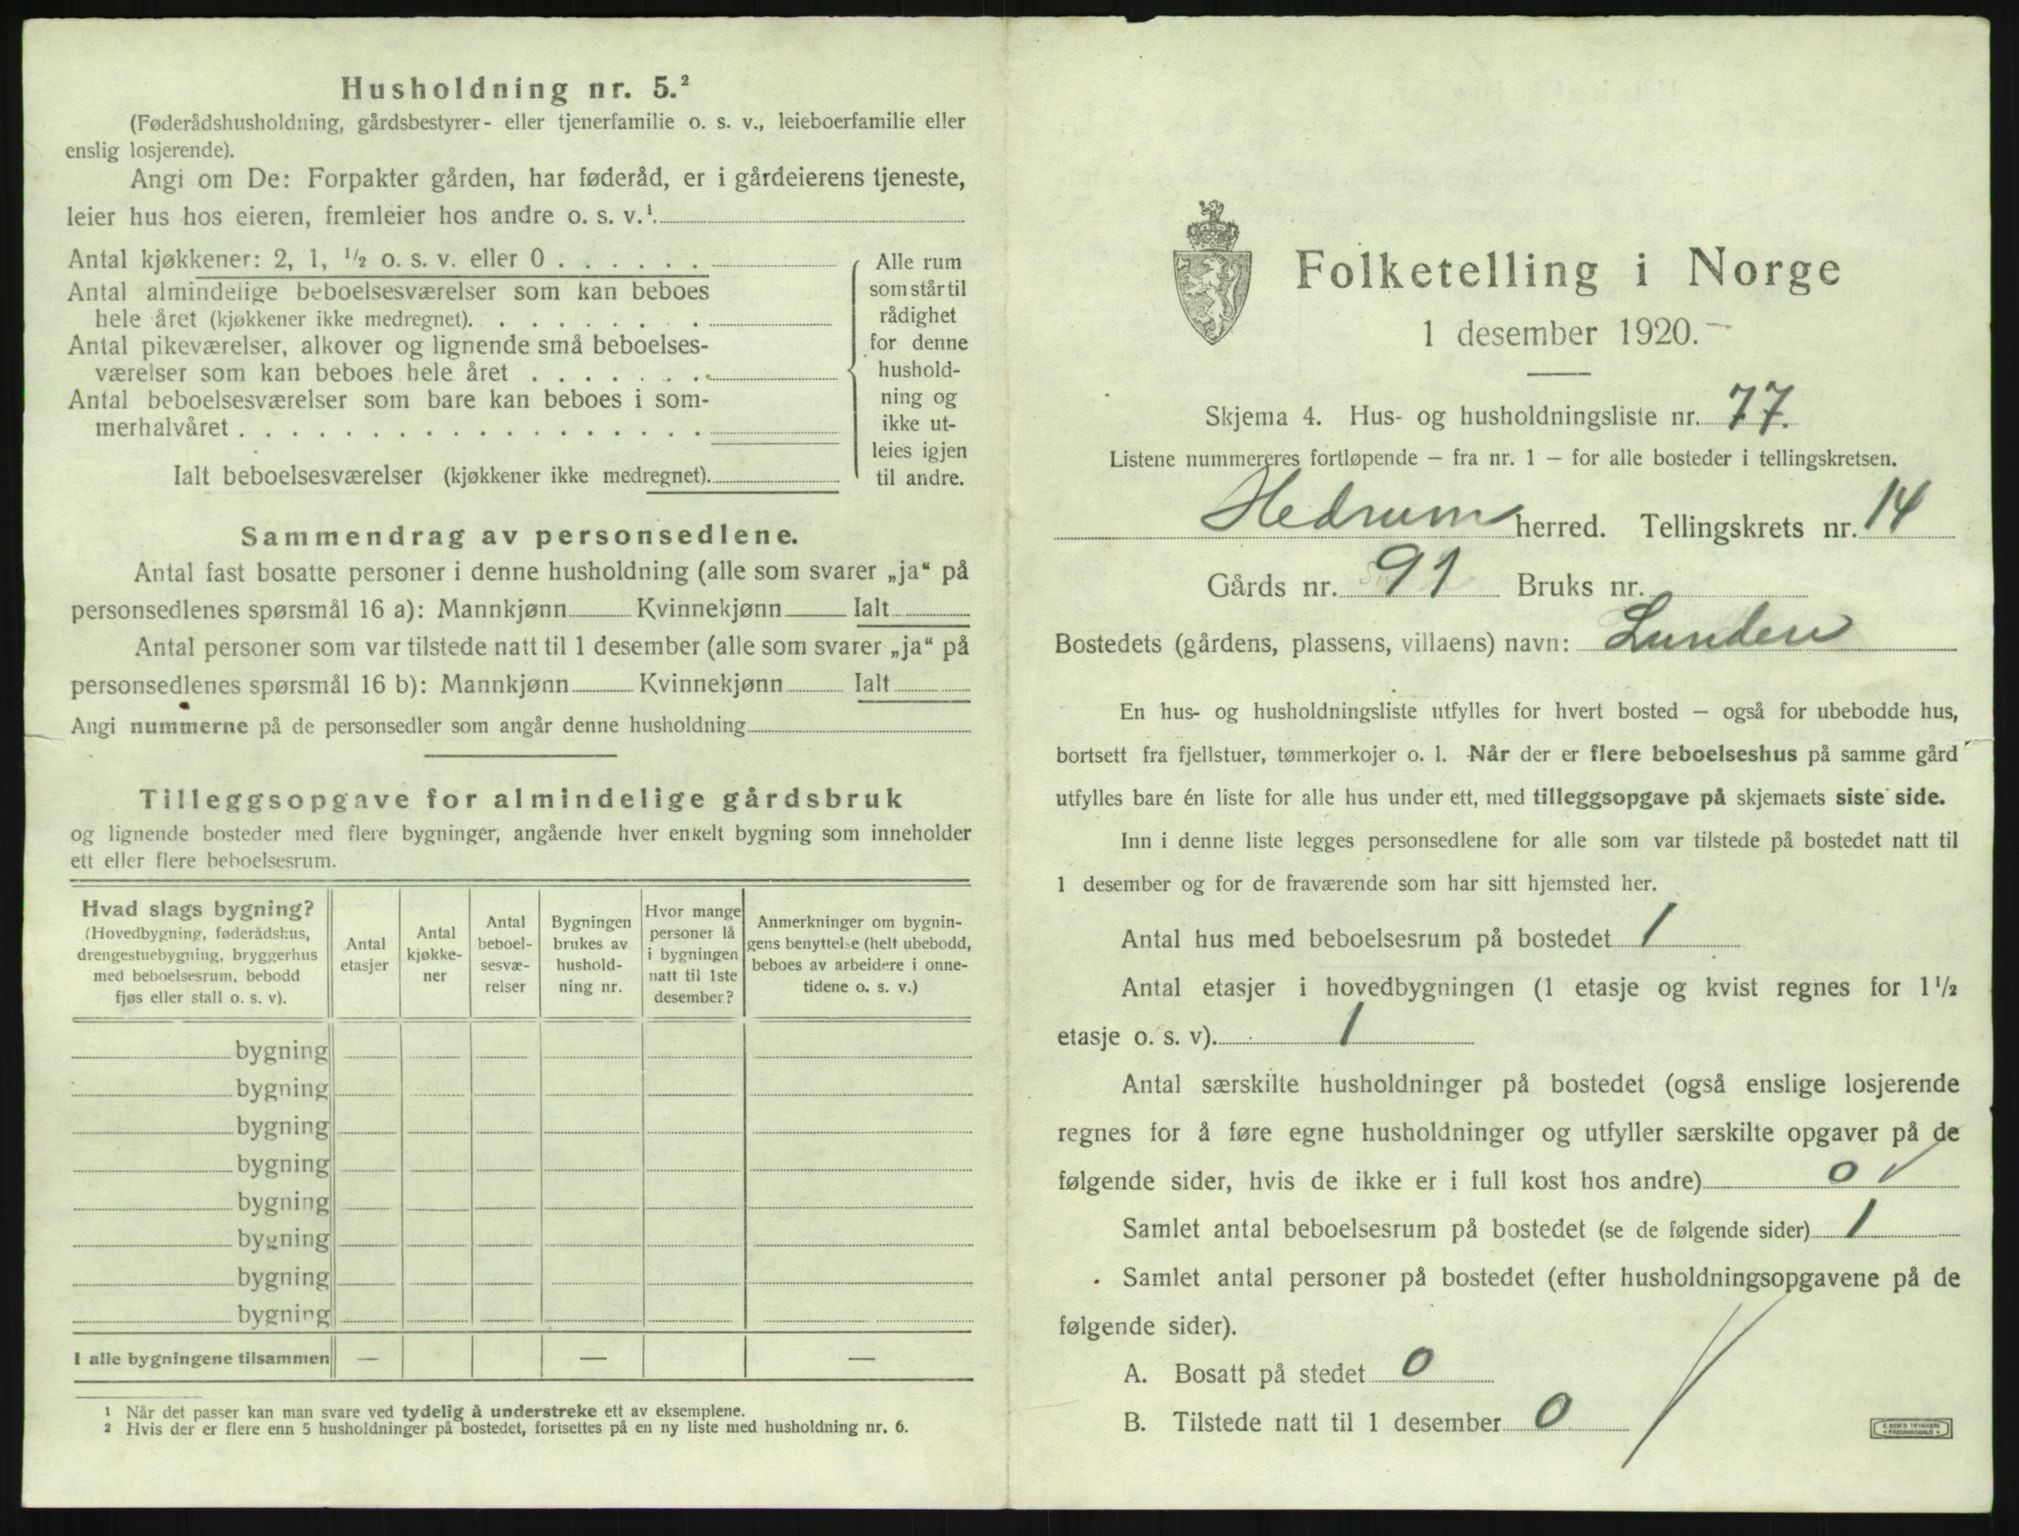 Husholdning nr. 5.²
(Føderådshusholdning, gårdsbestyrer- eller tjenerfamilie o. s. v., leieboerfamilie eller
enslig losjerende).
Angi om De: Forpakter gården, har føderåd, er i gårdeierens tjeneste,
leier hus hos eieren, fremleier hos andre o. s. v.¹.
Antal kjøkkener: 2, 1, ½ o. s. v. eller 0 . . . . . .
Antal almindelige beboelsesværelser som kan beboes
hele året (kjøkkener ikke medregnet). . . . . . . . .
Antal pikeværelser, alkover og lignende små beboelses-
værelser som kan beboes hele året . . . . . . .
Antal beboelsesværelser som bare kan beboes i som-
merhalvåret . . . . . . . . . . . . . . . . . .
Ialt beboelsesværelser (kjøkkener ikke medregnet).
Alle rum
som står til
rådighet
for denne
hushold-
ning og
ikke ut-
leies igjen
til andre.
Sammendrag av personsedlene.
Antal fast bosatte personer i denne husholdning (alle som svarer „ja“ på
personsedlenes spørsmål 16 a): Mannkjønn Kvinnekjønn Ialt
Antal personer som var tilstede natt til 1 desember (alle som svarer „ja“ på
personsedlenes spørsmål 16 b): Mannkjønn Kvinnekjønn Ialt
Angi nummerne på de personsedler som angår denne husholdning
Tilleggsopgave for almindelige gårdsbruk
og lignende bosteder med flere bygninger, angående hver enkelt bygning som inneholder
ett eller flere beboelsesrum.
Hvad slags bygning?
(Hovedbygning, føderådshus,
drengestuebygning, bryggerhus
med beboelsesrum, bebodd
fjøs eller stall o. s. v).
Antal
etasjer
Antal
kjøkke-
ner
Antal
beboel-
sesvæ-
relser
Bygningen
brukes av
hushold-
ning nr.
Hvor mange
personer lå
i bygningen
natt til 1ste
desember?
Anmerkninger om bygnin-
gens benyttelse (helt ubebodd,
beboes av arbeidere i onne-
tidene o. s. v.)
bygning
bygning
bygning
bygning
bygning
bygning
bygning
bygning
I alle bygningene tilsammen — — —
1 Når det passer kan man svare ved tydelig å understreke ett av eksemplene.
2 Hvis der er flere enn 5 husholdninger på bostedet, fortsettes på en ny liste med husholdning nr. 6.
Folketelling i Norge
1 desember 1920.
Skjema 4. Hus- og husholdningsliste nr. 77.
Listene nummereres fortløpende – fra nr. 1 – for alle bosteder i tellingskretsen.
Hedrum herred. Tellingskrets nr. 14
Gårds nr. 91 Bruks nr.
Bostedets (gårdens, plassens, villaens) navn: Lunden
En hus- og husholdningsliste utfylles for hvert bosted – også for ubebodde hus,
bortsett fra fjellstuer, tømmerkojer o. l. Når der er flere beboelseshus på samme gård
utfylles bare én liste for alle hus under ett, med tilleggsopgave på skjemaets siste side.
Inn i denne liste legges personsedlene for alle som var tilstede på bostedet natt til
1 desember og for de fraværende som har sitt hjemsted her.
Antal hus med beboelsesrum på bostedet 1
Antal etasjer i hovedbygningen (1 etasje og kvist regnes for 1½
etasje o. s. v). 1
Antal særskilte husholdninger på bostedet (også enslige losjerende
regnes for å føre egne husholdninger og utfyller særskilte opgaver på de
følgende sider, hvis de ikke er i full kost hos andre) 0
Samlet antal beboelsesrum på bostedet (se de følgende sider) 1
Samlet antal personer på bostedet (efter husholdningsopgavene på de
følgende sider).
A. Bosatt på stedet 0
B. Tilstede natt til 1 desember 0